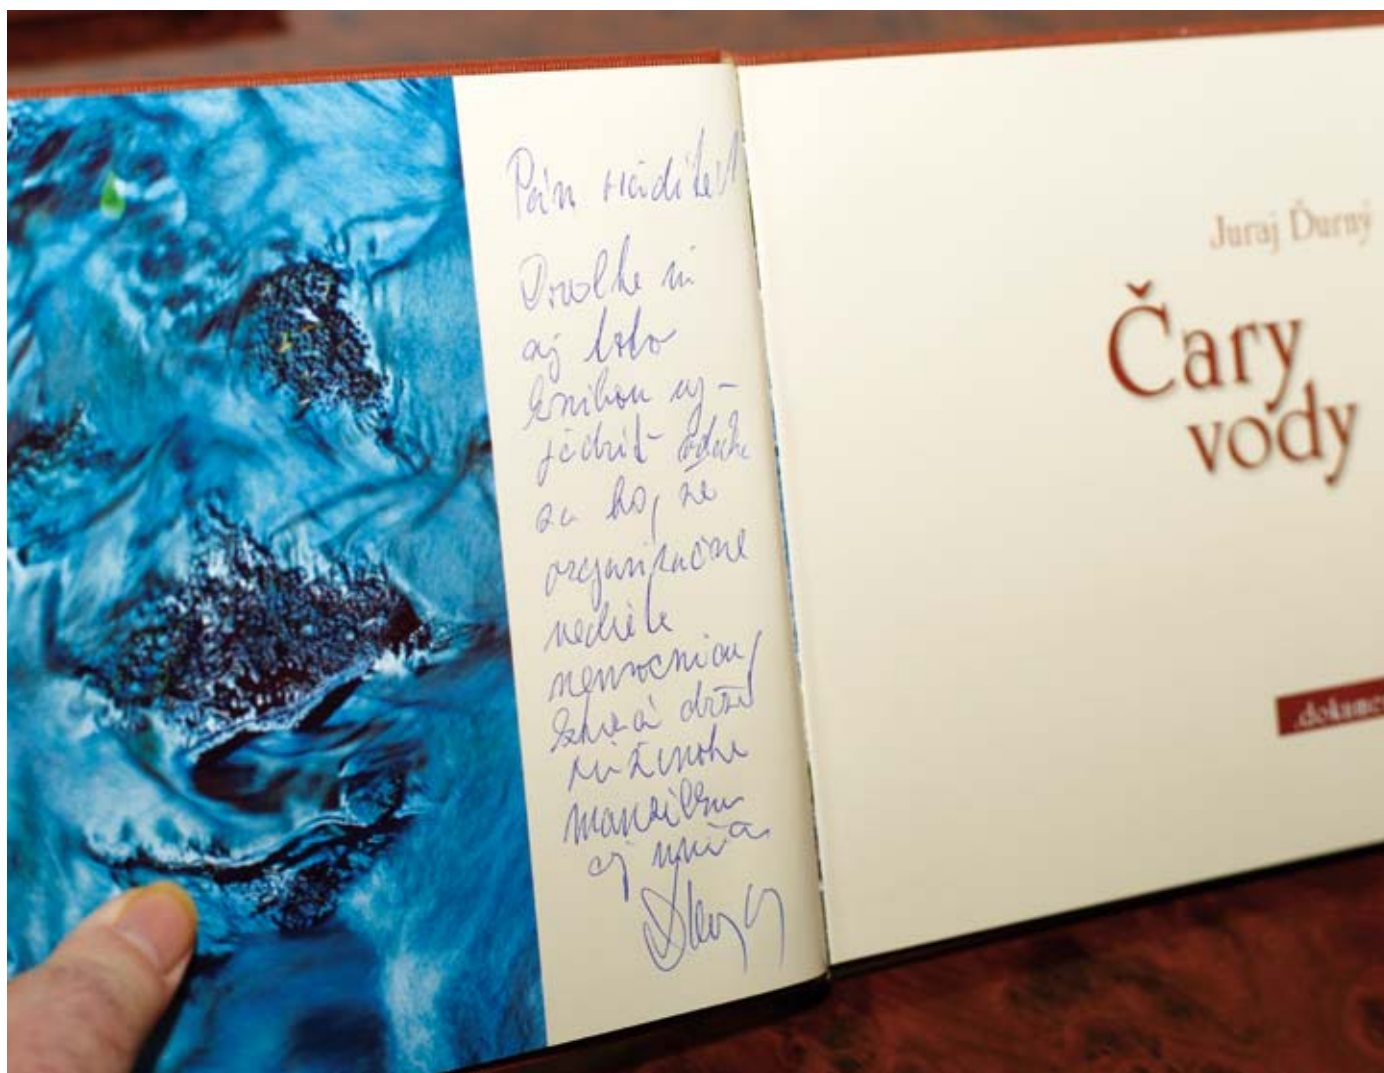 Pán riaditeľ!
Dovoľte mi
aj touto
knihou vy-
jadriť vďaku
za to, že
organizačne
vediete
nemocnicu,
ktorá drží
pri živote
manželku
aj mňa.
Juraj Ďurný
Čary
vody